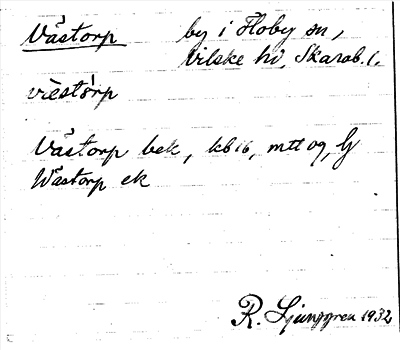 Västorp by i Floby sn,
Vilske hd, Skarab. l.
västòrp
Västorp bek, kb 16, mtt 09, Lj
Wästorp ek
R. Ljunggren 1932